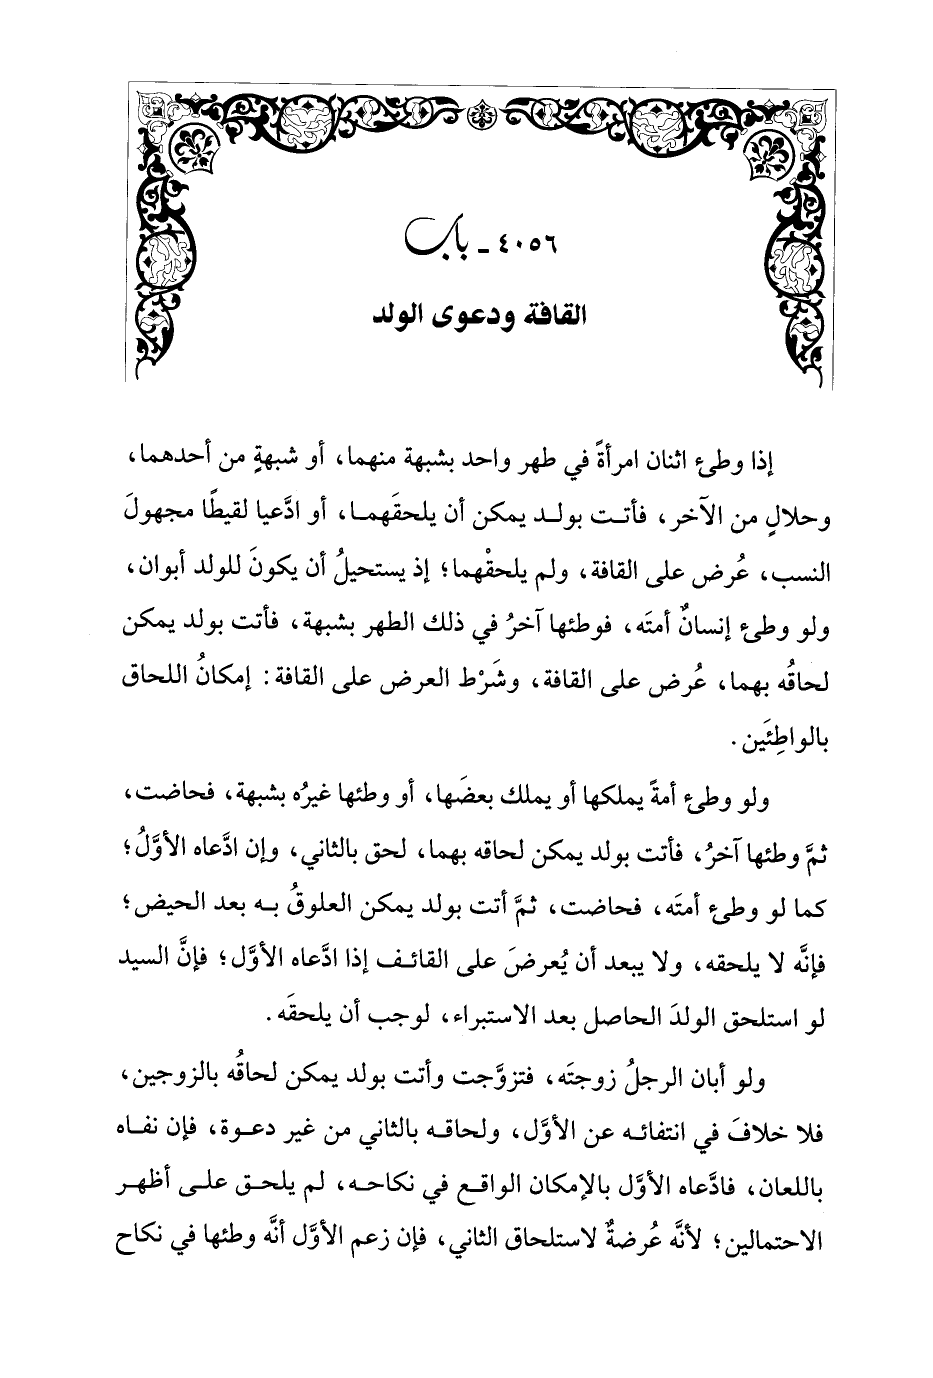 ٤٠٥٦ - باب
القافة ودعوى الولد
إذا وطئ اثنان امرأةً في طهر واحد بشبهة منهما، أو شبهةٍ من أحدهما،
وحلالٍ من الآخر، فأتت بولد يمكن أن يلحقَهما، أو ادَّعيا لقيطًا مجهولَ
النسب، عُرض على القافة، ولم يلحقْهما؛ إذ يستحيلُ أن يكونَ للولد أبوان،
ولو وطئ إنسانٌ أمتَه، فوطئها آخرُ في ذلك الطهر بشبهة، فأتت بولد يمكن
لحاقُه بهما، عُرض على القافة، وشَرْط العرض على القافة: إمكانُ اللحاق
بالواطِئَين.
ولو وطئ أمةً يملكها أو يملك بعضَها، أو وطئها غيرُه بشبهة، فحاضت،
ثمَّ وطئها آخرُ، فأتت بولد يمكن لحاقه بهما، لحق بالثاني، وإن ادَّعاه الأوَّلُ؛
كما لو وطئ أمتَه، فحاضت، ثمَّ أتت بولد يمكن العلوقُ به بعد الحيض؛
فإنَّه لا يلحقه، ولا يبعد أن يُعرضَ على القائف إذا ادَّعاه الأوَّل؛ فإنَّ السيد
لو استلحق الولدَ الحاصل بعد الاستبراء، لوجب أن يلحقَه.
ولو أبان الرجلُ زوجتَه، فتزوَّجت وأتت بولد يمكن لحاقُه بالزوجين،
فلا خلافَ في انتفائه عن الأوَّل، ولحاقه بالثاني من غير دعوة، فإن نفاه
باللعان، فادَّعاه الأوَّل بالإمكان الواقع في نكاحه، لم يلحق على أظهر
الاحتمالين؛ لأنَّه عُرضةٌ لاستلحاق الثاني، فإن زعم الأوَّل أنَّه وطئها في نكاح